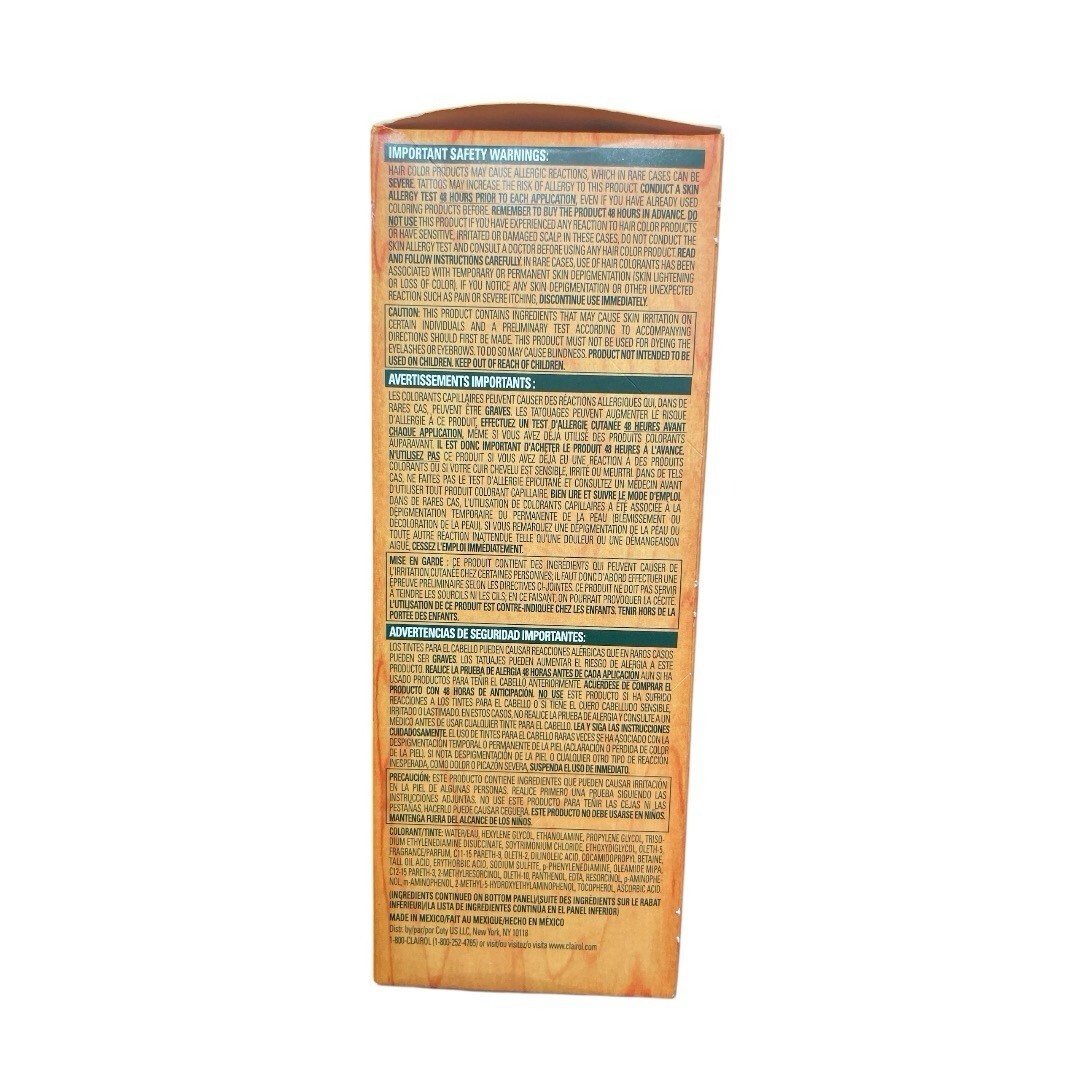 IMPORTANT SAFETY WARNINGS:
HAIR COLOR PRODUCTS MAY CAUSE ALLERGIC REACTIONS, WHICH IN RARE CASES CAN BE
SEVERE. TATTOOS MAY INCREASE THE RISK OF ALLERGY TO THIS PRODUCT. CONDUCT A SKIN
ALLERGY TEST 48 HOURS PRIOR TO EACH APPLICATION, EVEN IF YOU HAVE ALREADY USED
COLORING PRODUCTS BEFORE. REMEMBER TO BUY THE PRODUCT 48 HOURS IN ADVANCE. DO
NOT USE THIS PRODUCT IF YOU HAVE EXPERIENCED ANY REACTION TO HAIR COLOR PRODUCTS
OR HAVE SENSITIVE, IRRITATED OR DAMAGED SCALP. IN THESE CASES, DO NOT CONDUCT THE
SKIN ALLERGY TEST AND CONSULT A DOCTOR BEFORE USING ANY HAIR COLOR PRODUCT. READ
AND FOLLOW INSTRUCTIONS CAREFULLY. IN RARE CASES, USE OF HAIR COLORANTS HAS BEEN
ASSOCIATED WITH TEMPORARY OR PERMANENT SKIN DEPIGMENTATION (SKIN LIGHTENING
OR LOSS OF COLOR). IF YOU NOTICE ANY SKIN DEPIGMENTATION OR OTHER UNEXPECTED
REACTION SUCH AS PAIN OR SEVERE ITCHING, DISCONTINUE USE IMMEDIATELY.
CAUTION: THIS PRODUCT CONTAINS INGREDIENTS THAT MAY CAUSE SKIN IRRITATION ON
CERTAIN INDIVIDUALS AND A PRELIMINARY TEST ACCORDING TO ACCOMPANYING
DIRECTIONS SHOULD FIRST BE MADE. THIS PRODUCT MUST NOT BE USED FOR DYEING THE
EYELASHES OR EYEBROWS. TO DO SO MAY CAUSE BLINDNESS. PRODUCT NOT INTENDED TO BE
USED ON CHILDREN. KEEP OUT OF REACH OF CHILDREN.
AVERTISSEMENTS IMPORTANTS :
LES COLORANTS CAPILLAIRES PEUVENT CAUSER DES RÉACTIONS ALLERGIQUES QUI, DANS DE
RARES CAS, PEUVENT ÊTRE GRAVES. LES TATOUAGES PEUVENT AUGMENTER LE RISQUE
D'ALLERGIE À CE PRODUIT. EFFECTUEZ UN TEST D'ALLERGIE CUTANÉE 48 HEURES AVANT
CHAQUE APPLICATION, MÊME SI VOUS AVEZ DÉJÀ UTILISÉ DES PRODUITS COLORANTS
AUPARAVANT. IL EST DONC IMPORTANT D'ACHETER LE PRODUIT 48 HEURES À L'AVANCE.
N'UTILISEZ PAS CE PRODUIT SI VOUS AVEZ DÉJÀ EU UNE RÉACTION À DES PRODUITS
COLORANTS OU SI VOTRE CUIR CHEVELU EST SENSIBLE, IRRITÉ OU MEURTRI. DANS DE TELS
CAS, NE FAITES PAS LE TEST D'ALLERGIE ÉPICUTANÉ ET CONSULTEZ UN MÉDECIN AVANT
D'UTILISER TOUT PRODUIT COLORANT CAPILLAIRE. BIEN LIRE ET SUIVRE LE MODE D'EMPLOI.
DANS DE RARES CAS, L'UTILISATION DE COLORANTS CAPILLAIRES A ÉTÉ ASSOCIÉE À LA
DÉPIGMENTATION TEMPORAIRE OU PERMANENTE DE LA PEAU (BLÊMISSEMENT OU
DÉCOLORATION DE LA PEAU). SI VOUS REMARQUEZ UNE DÉPIGMENTATION DE LA PEAU OU
TOUTE AUTRE RÉACTION INATTENDUE TELLE QU'UNE DOULEUR OU UNE DÉMANGEAISON
AIGUË, CESSEZ L'EMPLOI IMMÉDIATEMENT.
MISE EN GARDE : CE PRODUIT CONTIENT DES INGRÉDIENTS QUI PEUVENT CAUSER DE
L'IRRITATION CUTANÉE CHEZ CERTAINES PERSONNES; IL FAUT DONC D'ABORD EFFECTUER UNE
ÉPREUVE PRÉLIMINAIRE SELON LES DIRECTIVES CI-JOINTES. CE PRODUIT NE DOIT PAS SERVIR
À TEINDRE LES SOURCILS NI LES CILS; EN CE FAISANT, ON POURRAIT PROVOQUER LA CÉCITÉ.
L'UTILISATION DE CE PRODUIT EST CONTRE-INDIQUÉE CHEZ LES ENFANTS. TENIR HORS DE LA
PORTÉE DES ENFANTS.
ADVERTENCIAS DE SEGURIDAD IMPORTANTES:
LOS TINTES PARA EL CABELLO PUEDEN CAUSAR REACCIONES ALÉRGICAS QUE EN RAROS CASOS
PUEDEN SER GRAVES. LOS TATUAJES PUEDEN AUMENTAR EL RIESGO DE ALERGIA A ESTE
PRODUCTO. REALICE LA PRUEBA DE ALERGIA 48 HORAS ANTES DE CADA APLICACIÓN AUN SI HA
USADO PRODUCTOS PARA TEÑIR EL CABELLO ANTERIORMENTE. ACUÉRDESE DE COMPRAR EL
PRODUCTO CON 48 HORAS DE ANTICIPACIÓN. NO USE ESTE PRODUCTO SI HA SUFRIDO
REACCIONES A LOS TINTES PARA EL CABELLO O SI TIENE EL CUERO CABELLUDO SENSIBLE,
IRRITADO O LASTIMADO. EN ESTOS CASOS, NO REALICE LA PRUEBA DE ALERGIA Y CONSULTE A UN
MÉDICO ANTES DE USAR CUALQUIER TINTE PARA EL CABELLO. LEA Y SIGA LAS INSTRUCCIONES
CUIDADOSAMENTE. EL USO DE TINTES PARA EL CABELLO RARAS VECES SE HA ASOCIADO CON LA
DESPIGMENTACIÓN TEMPORAL O PERMANENTE DE LA PIEL (ACLARACIÓN O PÉRDIDA DE COLOR
DE LA PIEL). SI NOTA DESPIGMENTACIÓN DE LA PIEL O CUALQUIER OTRO TIPO DE REACCIÓN
INESPERADA, COMO DOLOR O PICAZÓN SEVERA, SUSPENDA EL USO DE INMEDIATO.
PRECAUCIÓN: ESTE PRODUCTO CONTIENE INGREDIENTES QUE PUEDEN CAUSAR IRRITACIÓN
EN LA PIEL DE ALGUNAS PERSONAS. REALICE PRIMERO UNA PRUEBA SIGUIENDO LAS
INSTRUCCIONES ADJUNTAS. NO USE ESTE PRODUCTO PARA TEÑIR LAS CEJAS NI LAS
PESTAÑAS. HACERLO PUEDE CAUSAR CEGUERA. ESTE PRODUCTO NO DEBE USARSE EN NIÑOS.
MANTENGA FUERA DEL ALCANCE DE LOS NIÑOS.
COLORANT/TINTE: WATER/EAU, HEXYLENE GLYCOL, ETHANOLAMINE, PROPYLENE GLYCOL, TRISO-
DIUM ETHYLENEDIAMINE DISUCCINATE, SOYTRIMONIUM CHLORIDE, ETHOXYDIGLYCOL, OLETH-5,
FRAGRANCE/PARFUM, C11-15 PARETH-9, OLETH-2, DILINOLEIC ACID, COCAMIDOPROPYL BETAINE,
TALL OIL ACID, ERYTHORBIC ACID, SODIUM SULFITE, p-PHENYLENEDIAMINE, OLEAMIDE MIPA,
C12-15 PARETH-3, 2-METHYLRESORCINOL, OLETH-10, PANTHENOL, EDTA, RESORCINOL, p-AMINOPHE-
NOL, m-AMINOPHENOL, 2-METHYL-5-HYDROXYETHYLAMINOPHENOL, TOCOPHEROL, ASCORBIC ACID.
(INGREDIENTS CONTINUED ON BOTTOM PANEL)/(SUITE DES INGRÉDIENTS SUR LE RABAT
INFÉRIEUR)/(LA LISTA DE INGREDIENTES CONTINÚA EN EL PANEL INFERIOR)
MADE IN MEXICO/FAIT AU MEXIQUE/HECHO EN MÉXICO
Distr. by/par/por Coty US LLC, New York, NY 10118
1-800-CLAIROL (1-800-252-4765) or visit/ou visitez/o visita www.clairol.com